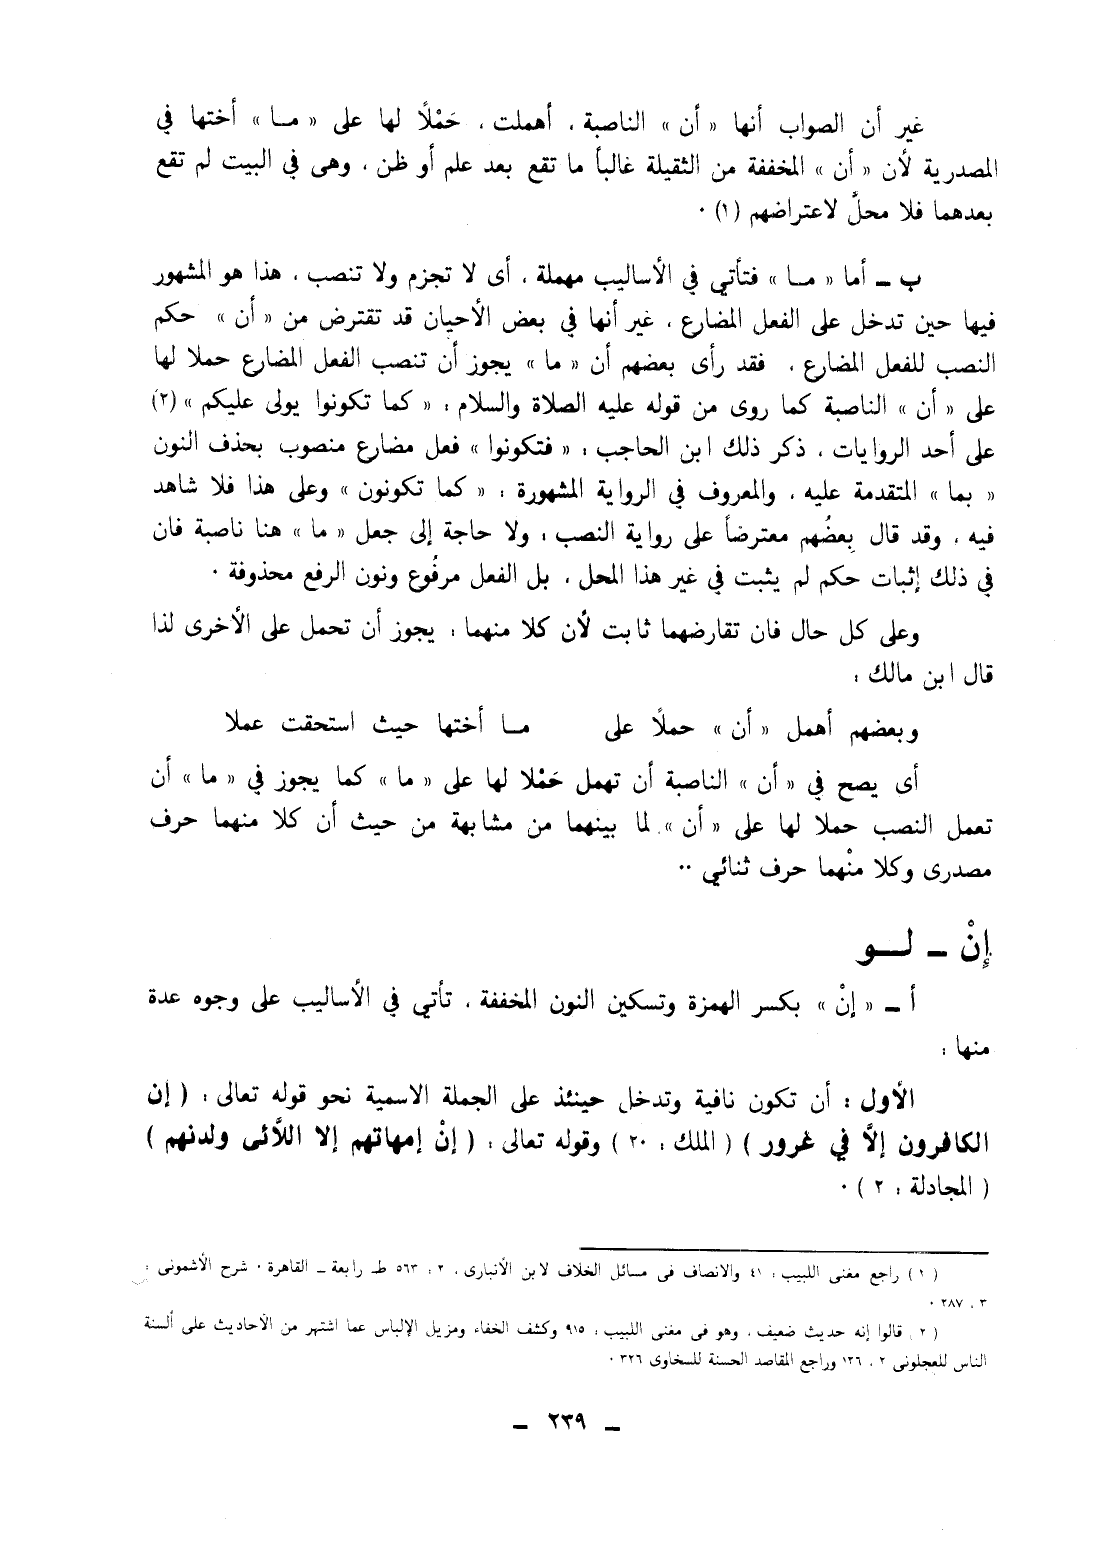 غير أن الصواب أنها « أن » الناصبة ، أهملت ، حَمْلًا لها على « مـا » أختها في
المصدرية لأن « أن » المخففة من الثقيلة غالبأ ما تقع بعد علم أو ظن ، وهى في البيت لم تقع
بعدهما فلا محلَّ لاعتراضهم (١) ٠
ب ـ أما « مـا » فتأتي في الأساليب مهملة ، أى لا تجزم ولا تنصب ، هذا هو المشهور
فيها حين تدخل على الفعل المضارع ، غير أنها في بعض الأحيان قد تقترض من « أن » حكم
النصب للفعل المضارع ، فقد رأى بعضهم أن « ما » يجوز أن تنصب الفعل المضارع حملا لها
على « أن » الناصبة كما روى من قوله عليه الصلاة والسلام : « كما تكونوا يولى عليكم » (٢)
على أحد الروايات ، ذكر ذلك ابن الحاجب : « فتكونوا » فعل مضارع منصوب بحذف النون
« بما » المتقدمة عليه ، والمعروف في الرواية المشهورة : « كما تكونون » وعلى هذا فلا شاهد
فيه ، وقد قال بعضُهم معترضأ على رواية النصب : ولا حاجة إلى جعل « ما » هنا ناصبة فان
في ذلك إثبات حكم لم يثبت في غير هذا المحل ، بل الفعل مرفُوع ونون الرفع محذوفة ٠
وعلى كل حال فان تقارضهما ثابت لأن كلا منهما : يجوز أن تحمل على الأخرى لذا
قال ابن مالك :
وبعضهم أهمل « أن » حملًا على مـا أختها حيث استحقت عملا
أى يصح في « أن » الناصبة أن تهمل حَمْلا لها على « ما » كما يجوز في « ما » أن
تعمل النصب حملا لها على « أن » لما بينهما من مشابهة من حيث أن كلا منهما حرف
مصدرى وكلا منْهما حرف ثنائي ٠٠
إِنْ ـ لـــو
أ ـ « إنْ » بكسر الهمزة وتسكين النون المخففة ، تأتي في الأساليب على وجوه عدة
منها :
الأول : أن تكون نافية وتدخل حينئذ على الجملة الاسمية نحو قوله تعالى : ( إن
الكافرون إلاَّ في غرور ) ( الملك : ٢٠ ) وقوله تعالى : ( إنْ إمهاتهم إلا اللاَّئى ولدنهم )
( المجادلة : ٢ ) ٠
( ١ ) راجع مغنى اللبيب : ٤١ والانصاف فى مسائل الخلاف لابن الأنبارى ، ٢ : ٥٦٣ طـ رابعة ـ القاهرة ٠ شرح الأشمونى :
٣ ، ٢٨٧ ٠
( ٢ ) قالوا إنه حديث ضعيف ، وهو فى مغنى اللبيب : ٩١٥ وكشف الخفاء ومزيل الإلباس عما اشتهر من الأحاديث على ألسنة
الناس للعجلونى ٢ ، ١٢٦ وراجع المقاصد الحسنة للسخاوى ٣٢٦ ٠
ـ ٢٣٩ ـ